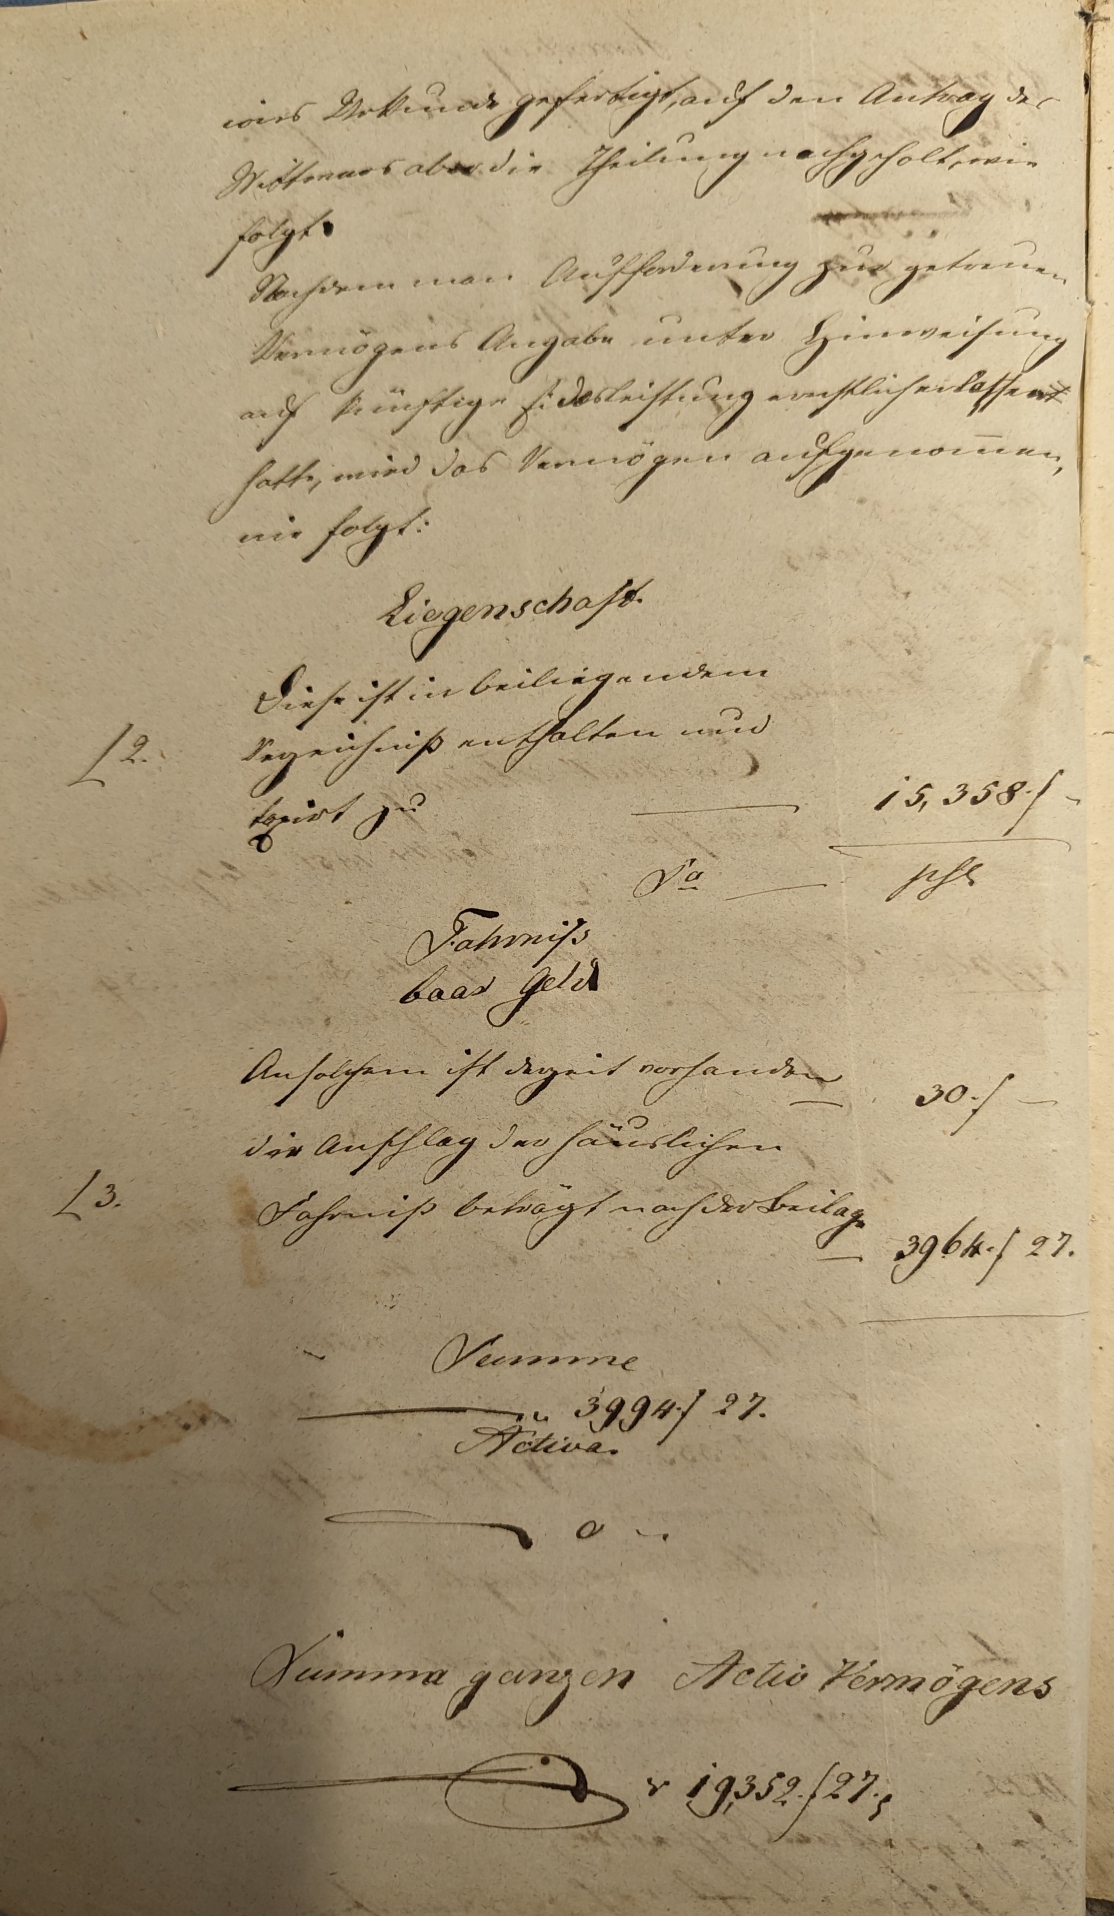 Urkunde gefertigt, auf den Antrag des
Wittwers aber die Theilung nachgeholt, wie
folgt.
Nachdem man Aufforderung zur getreuen
Vermögens Angabe unter Hinweisung
auf künftige Eidesleistung ernstlich erlassen
hatte, wird das Vermögen aufgenommen,
wie folgt:
Liegenschaft.
Diese ist in beiliegendem
L 2. Verzeichniß enthalten und
taxirt zu — 15,358 f —
Sa — p. se
Fahrniß
baar Geld
An solchem ist derzeit vorhanden — 30 f —
der Anschlag der häuslichen
L 3. Fahrniß beträgt nach der Beilage
— 3964 f 27.
Summe
— 3994 f 27.
Activa.
— 0 —
Summa ganzen Activ Vermögens
19,352 f 27.